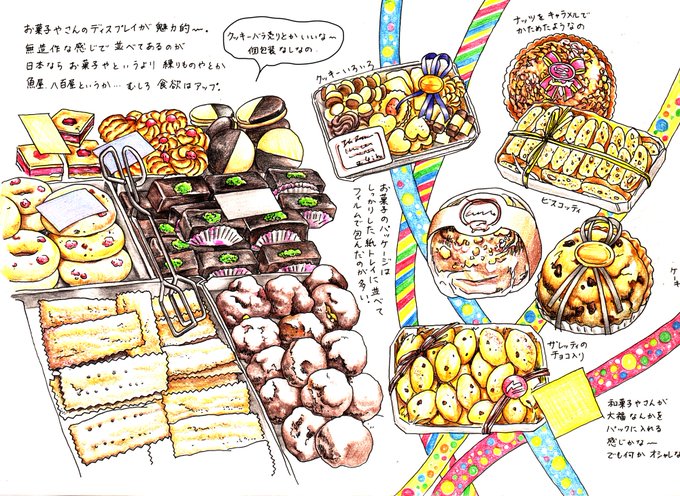 お菓子やさんのディスプレイが魅力的〜。
無造作な感じで並べてあるのが
日本ならお菓子やというより練りものやとか
魚屋、八百屋というか… むしろ食欲はアップ。
クッキーバラ売りとかいいな〜
個包装なしなの
クッキーいろいろ
ナッツをキャラメルで
かためたようなの
ビスコッティ
お菓子のパッケージは
しっかりした紙トレイに並べて
フィルムで包んだのが多い
ケーキ
ザレッティの
チョコ入り
和菓子やさんが
大福なんかを
パックに入れる
感じかな〜
でも何かオシャレな